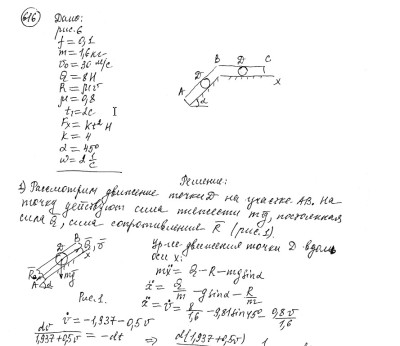 616 Дано:
рис.6
f = 0,1
m = 1,6 кг
v₀ = 20 м/с
Q = 8 Н
R = μv
μ = 0,8
t₁ = 2 c
Fx = kt² Н
k = 4
α = 45°
B D C
D
A α x
Решение:
1) Рассмотрим движение точки D на участке AB. На
точку действуют сила тяжести mg, постоянная
сила Q, сила сопротивления R (рис.1).
Ур-ие движения точки D вдоль
оси x:
mẍ = Q - R - mg sinα
ẍ = Q/m - g sinα - R/m
ẍ = v̇ = 8/1,6 - 9,81 sin45° - 0,8v/1,6
B Q, v
D
R
A α mg
Рис.1.
v̇ = -1,937 - 0,5v
dv/1,937+0,5v = -dt ⇒ d(1,937+0,5v)